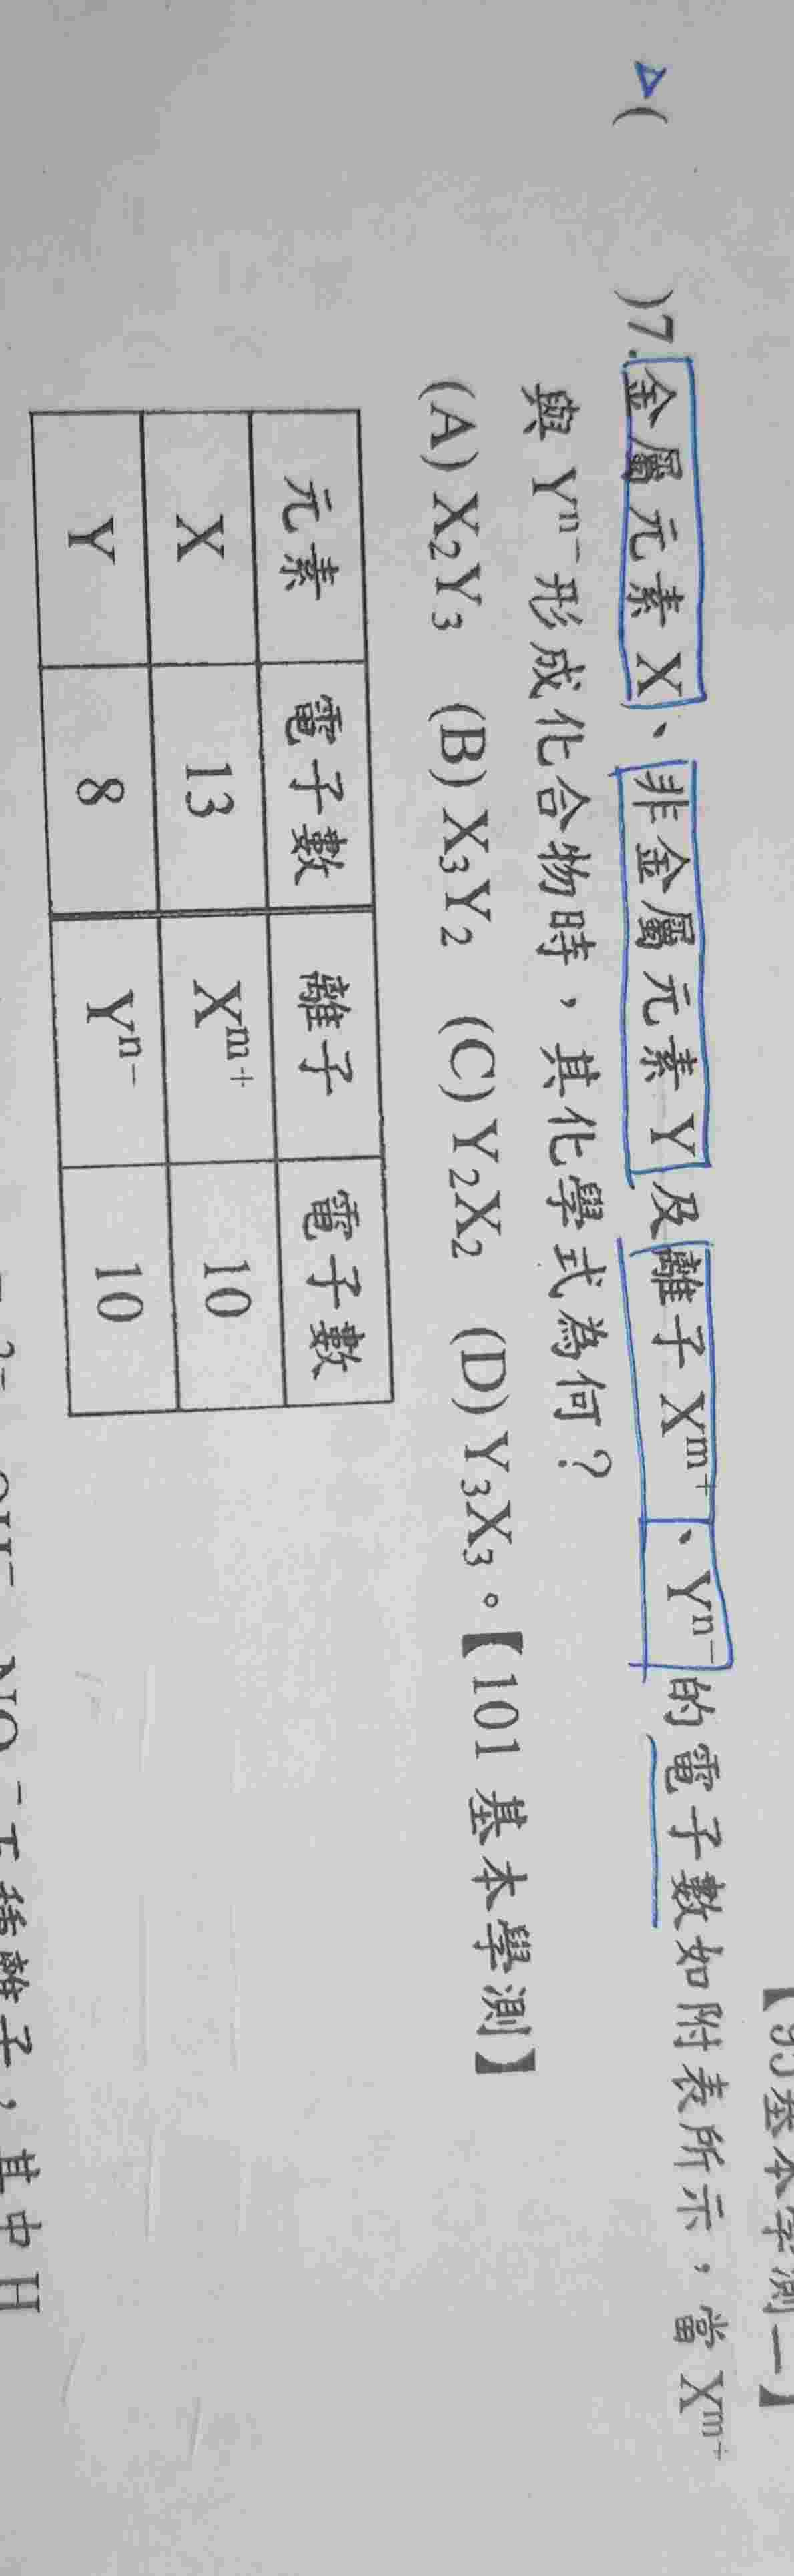 【95基本學測一】
△(　　)7.金屬元素X、非金屬元素Y及離子Xᵐ⁺、Yⁿ⁻的電子數如附表所示，當Xᵐ⁺
與Yⁿ⁻形成化合物時，其化學式為何？
(A)X₂Y₃　(B)X₃Y₂　(C)Y₂X₂　(D)Y₃X₃。【101基本學測】
元素　電子數　離子　電子數
X　13　Xᵐ⁺　10
Y　8　Yⁿ⁻　10
離子，其中H